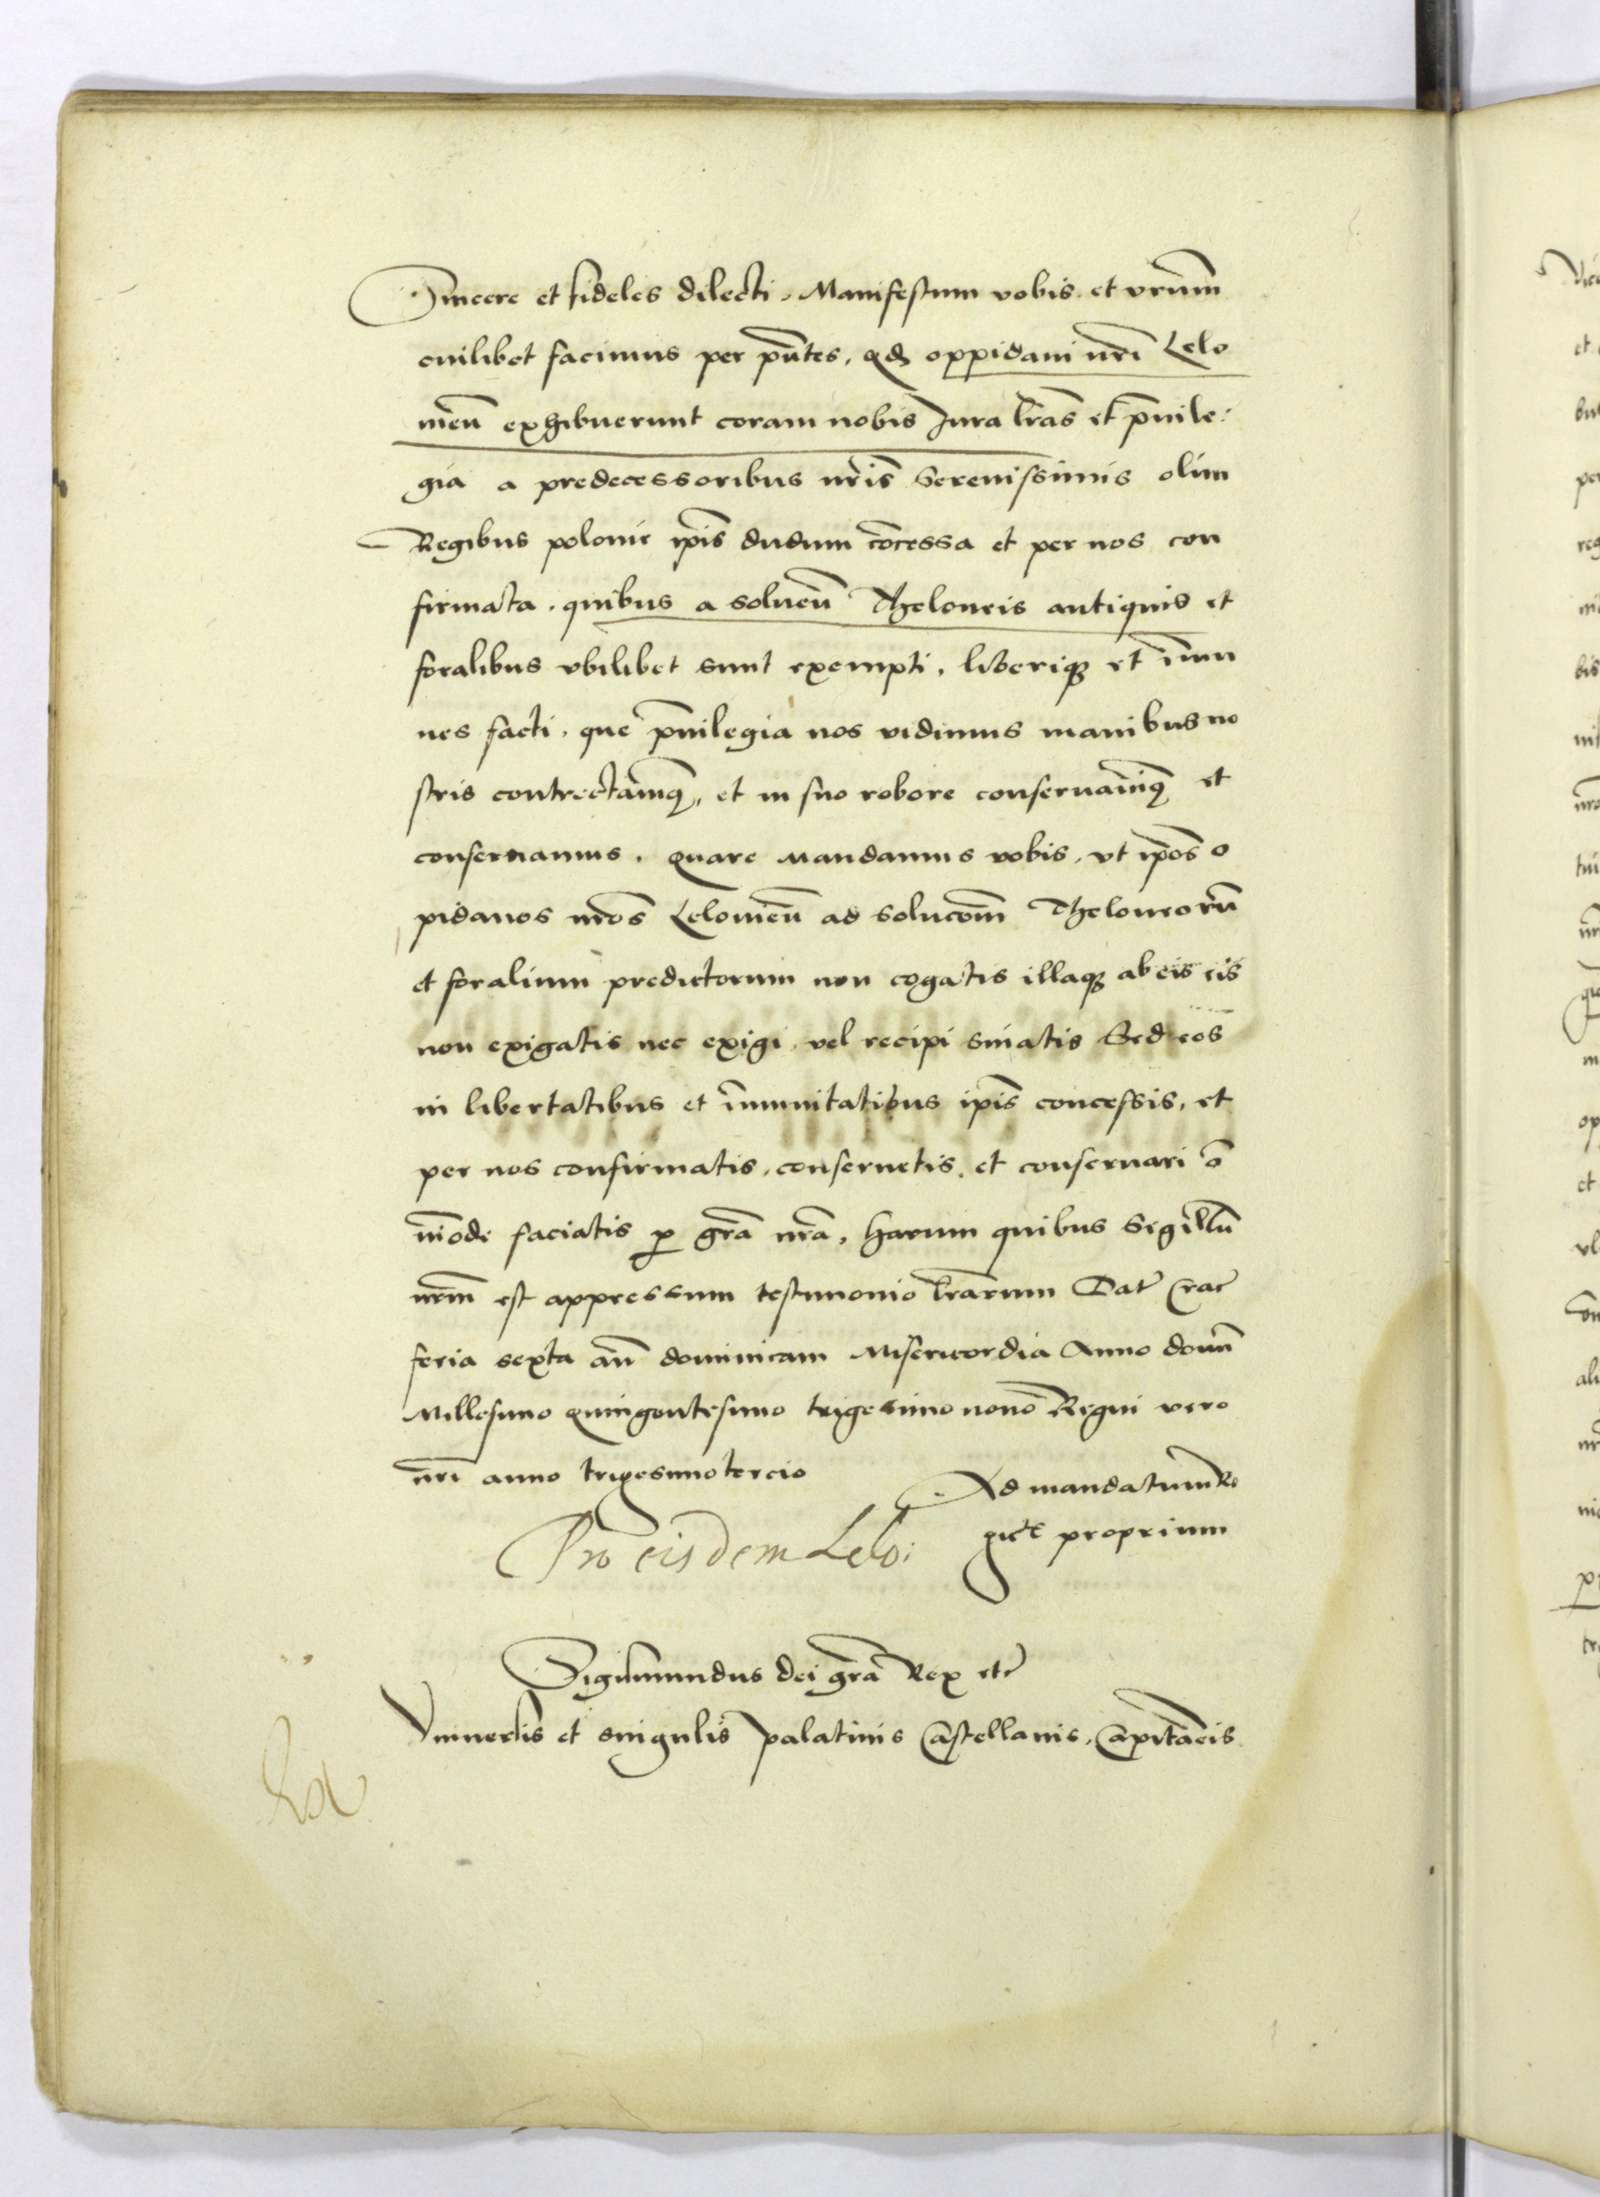 Sincere et fideles dilecti. Manifestum vobis et vrum̄
cuilibet facimus per pn̄tes, qd oppidani nrī Lelo
vien̄ exhibuerunt coram nobis Jura lrās et pruile:
gia a predecessoribus nrīs Serenissimis olim
Regibus polonie ip̄is dudum cōcessa et per nos con
firmata. quibus a soluen̄ Theloneis antiquis et
foralibus vbilibet sunt exempti, liberiq; et īmu
nes facti. que pruilegia nos vidimus manibus no
stris contrectauimq;, et in suo robore conseruauimq; et
conseruamus. quare Mandamus vobis, vt ip̄os o
pidanos nrōs Lelouien̄ ad solucom̄ Theloneorū
et foralium predictorum non cogatis illaq; ab eis eis
non exigatis nec exigi vel recipi sinatis Sed eos
in libertatibus et īmunitatibus ip̄is concessis, et
per nos confirmatis, conseruetis, et conseruari ō
nimode faciatis p grā nrā, harum quibus Sigillū
nrm̄ est appressum testimonio lrārum Dat Crac
feria sexta an̄ dominicam Misericordia Anno domn̄
Millesimo quingentesimo trigesimo nono Regni vero
nrī anno trigesimotercio
Ad mandatum Re
gie proprium
Pro eisdem Lelo:
Sigismundus dei grā Rex etc
Vniuersis et singulis palatinis Castellanis, Capitaneis